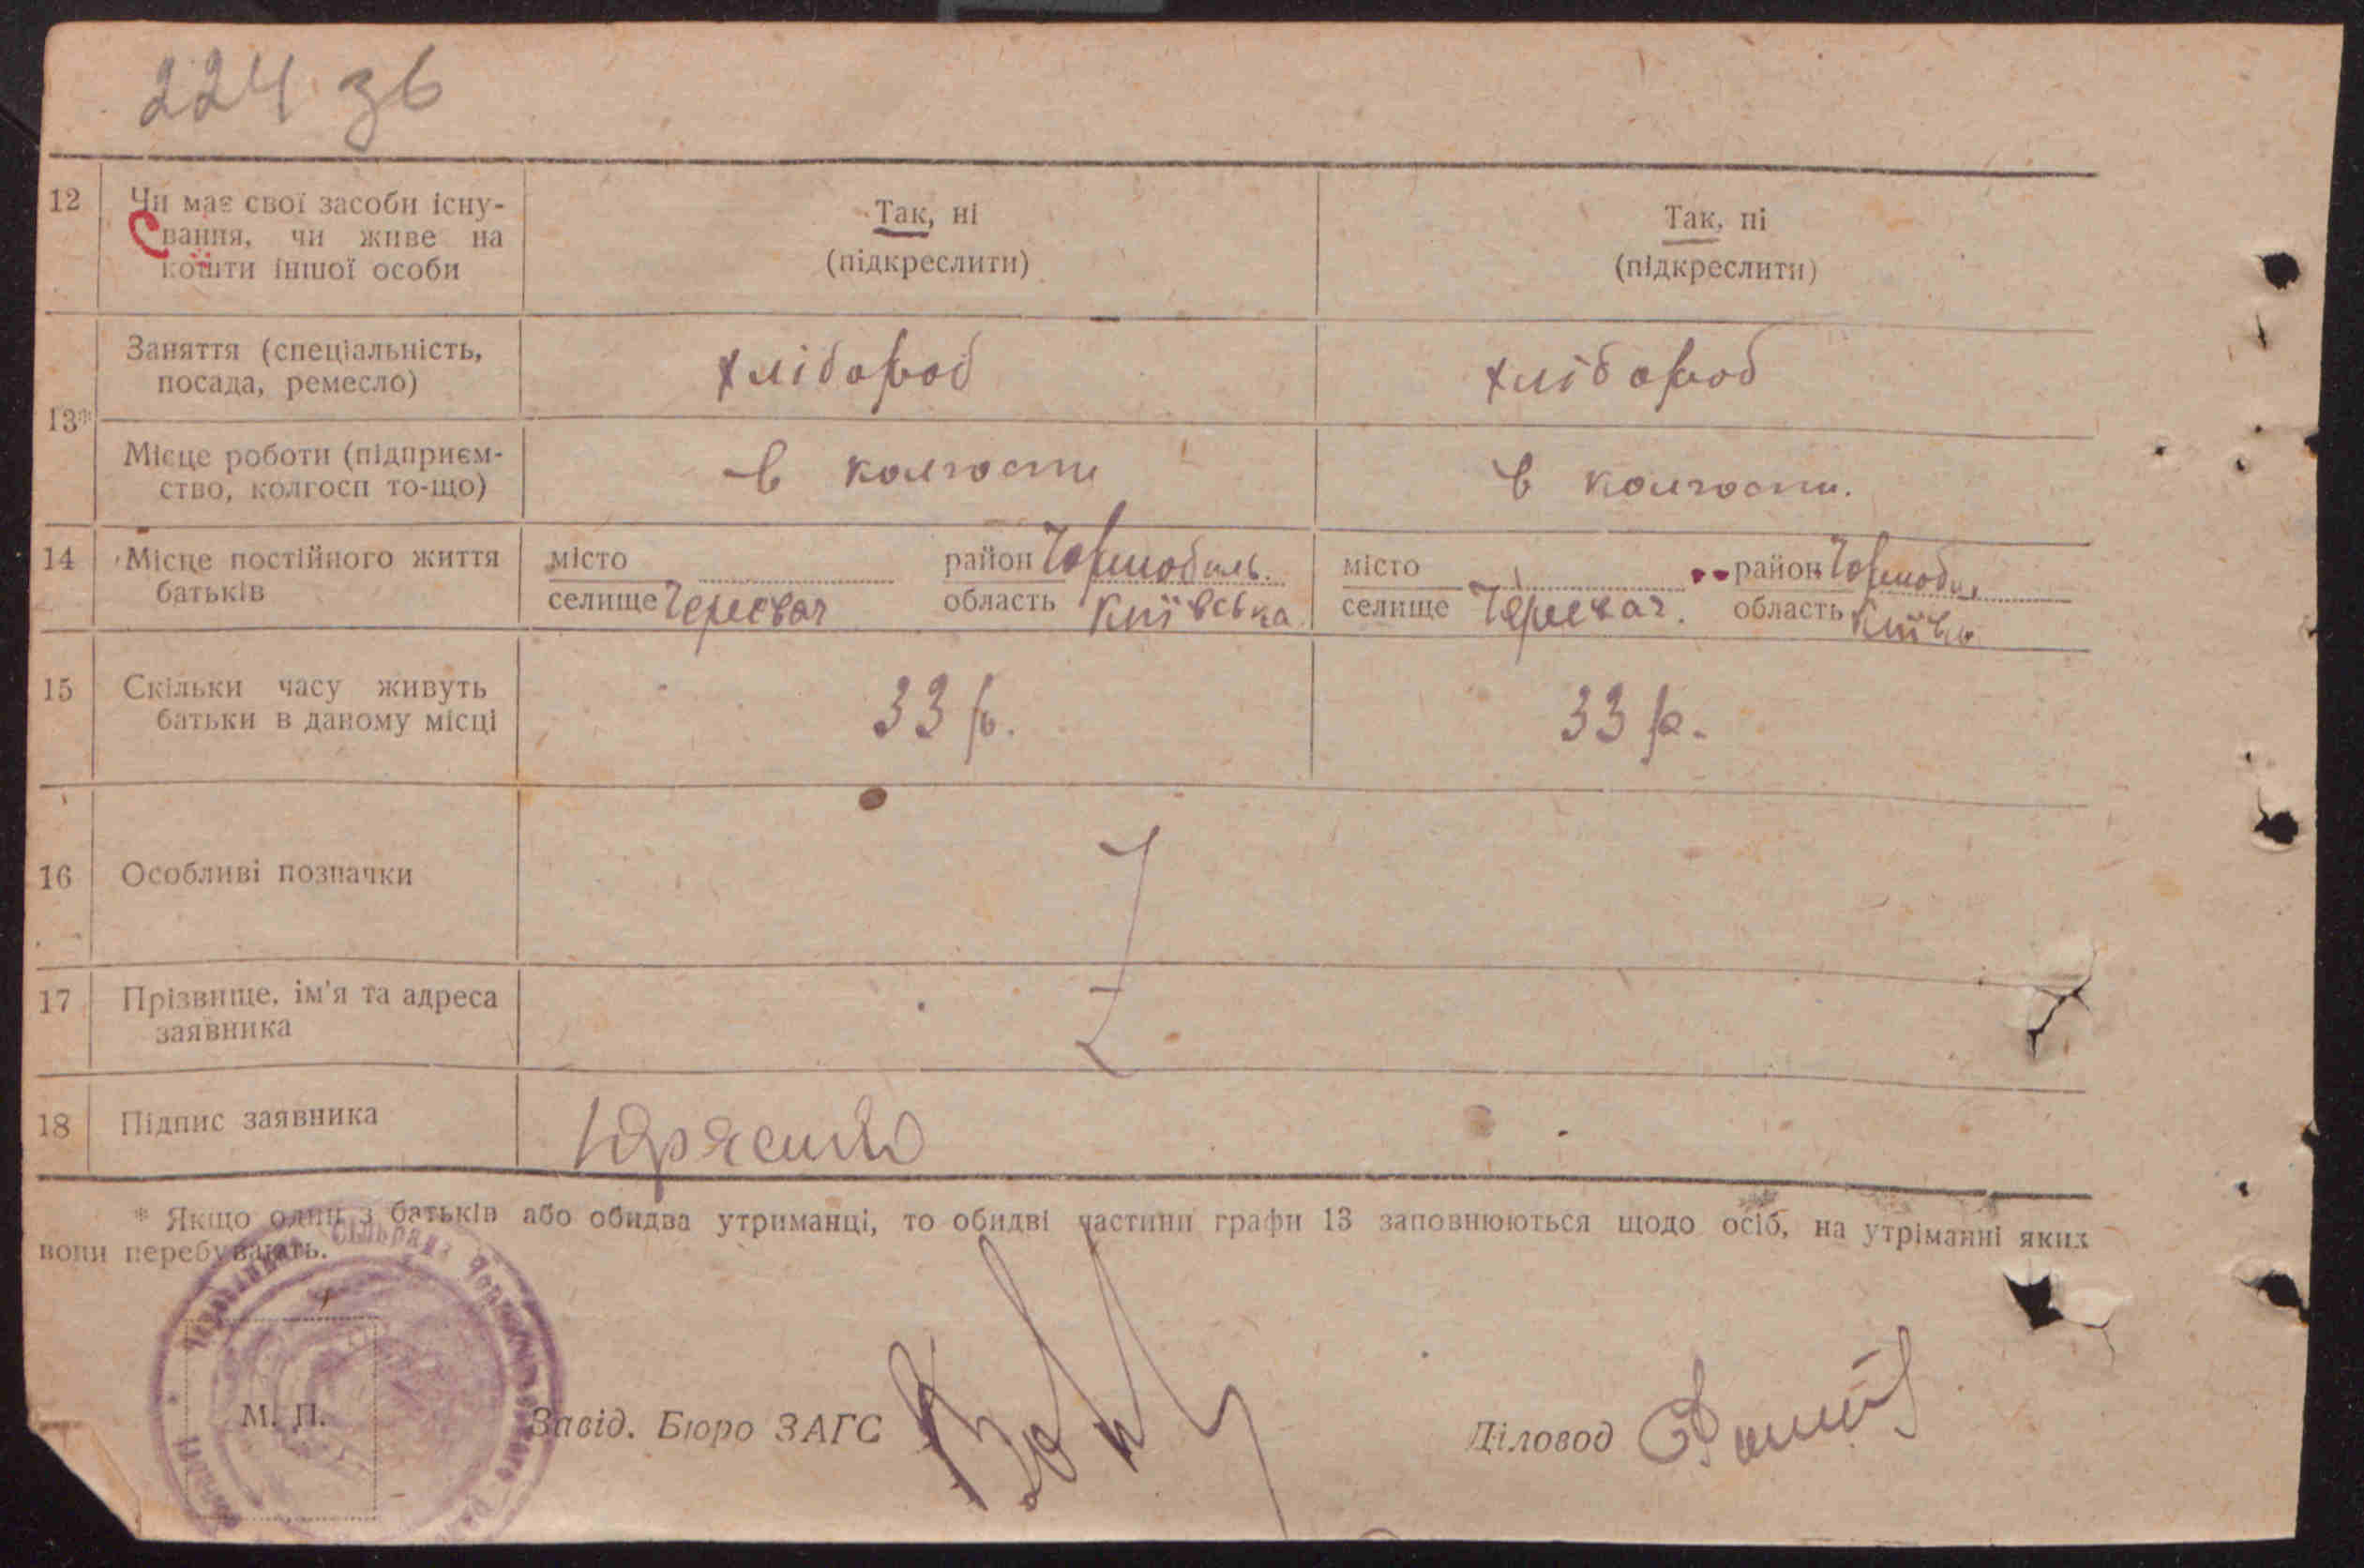 224 зв
12 Чи має свої засоби існу-
вання, чи живе на
кошти іншої особи
Так, ні
(підкреслити)
Так, ні
(підкреслити)
13*
Заняття (спеціальність,
посада, ремесло)
хлібороб
хлібороб
Місце роботи (підприєм-
ство, колгосп то-що)
в колгоспи
в колгоспи.
14 Місце постійного життя
батьків
місто
селище Черевач
район Чорнобиль.
область Київська
місто
селище Черевач.
район Чорноб.
область Київ
15 Скільки часу живуть
батьки в даному місці
33 р.
33 р.
16 Особливі позначки
17 Прізвище, ім'я та адреса
заявника
18 Підпис заявника
* Якщо один з батьків або обидва утриманці, то обидві частини графи 13 заповнюються щодо осіб, на утріманні яких
вони перебувають.
сільрада
М. П.
Завід. Бюро ЗАГС
Діловод